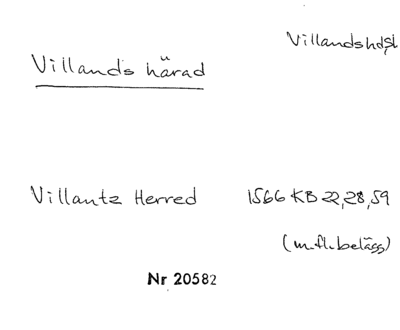 Villandshdsl
Villands härad
Villantz Herred 1566 KB 22,28,59
(m.fl.belägg)
Nr 20582